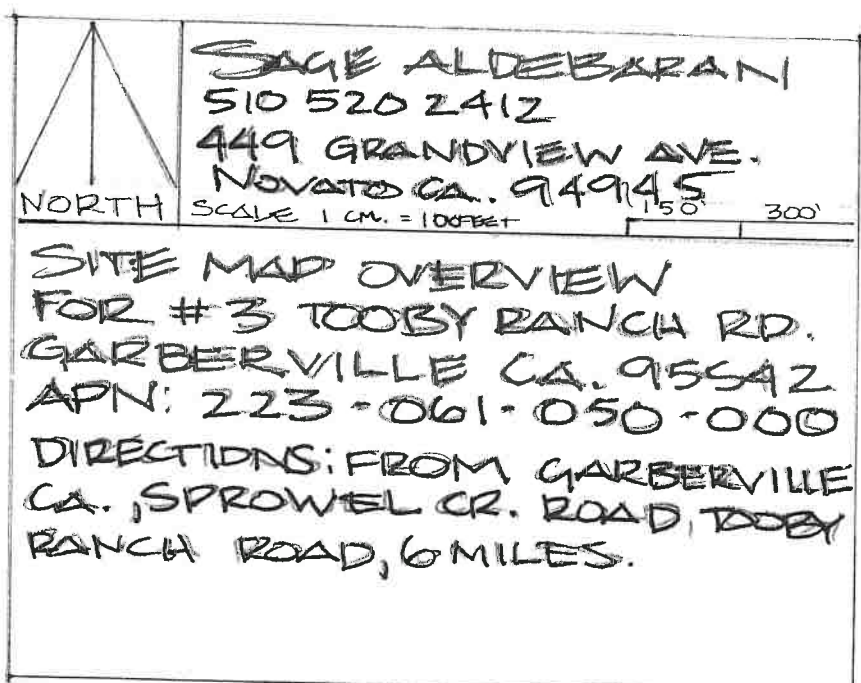 SAGE ALDEBARAN
510 520 2412
449 GRANDVIEW AVE.
NOVATO CA. 94945
NORTH
SCALE 1 CM. = 100FEET
150' 300'
SITE MAP OVERVIEW
FOR #3 TOOBY RANCH RD.
GARBERVILLE CA. 95542
APN: 223-061-050-000
DIRECTIONS: FROM GARBERVILLE
CA., SPROWEL CR. ROAD, TOOBY
RANCH ROAD, 6 MILES.